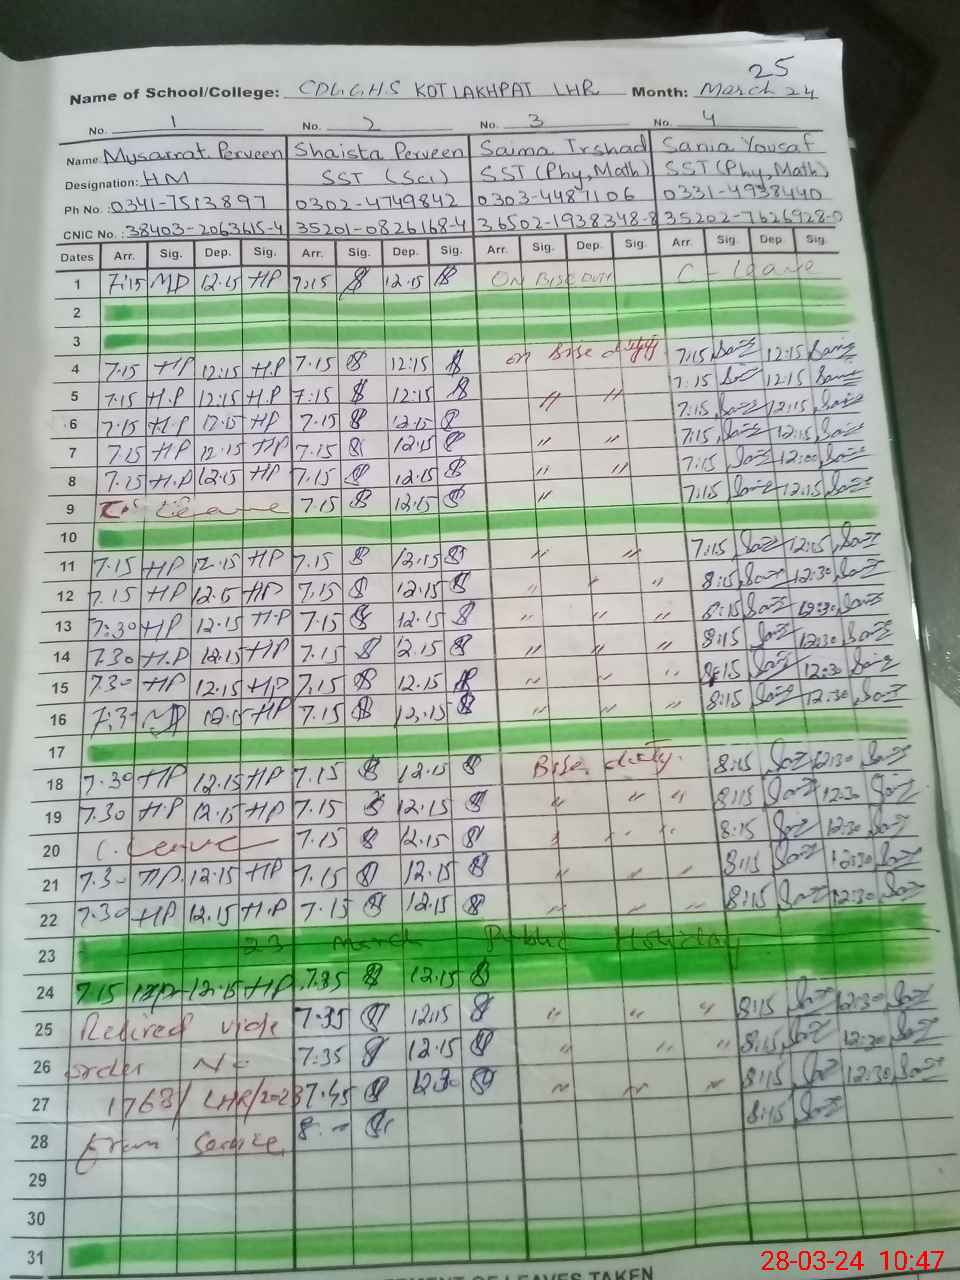 25
Name of School/College: CDG.G.H.S KOT LAKHPAT LHR Month: March 24
No. 1 No. 2 No. 3 No. 4
Name Musarrat Perveen Shaista Perveen Saima Irshad Sania Yousaf
Designation: HM SST (Sci) SST (Phy, Math) SST (Phy, Math)
Ph No.: 0341-7513897 0302-4749842 0303-4487106 0331-4938440
CNIC No.: 38403-2063615-4 35201-0826168-4 36502-1938348-8 35202-7626928-0
Dates Arr. Sig. Dep. Sig. Arr. Sig. Dep. Sig. Arr. Sig. Dep. Sig. Arr. Sig. Dep. Sig.
1 7:15 12.15 HP 7:15 12.15 ON BISE DUTY C-leave
2
3
4 7.15 HP 12:15 H.P 7.15 12:15 on Bise duty 7:15 12:15
5 7.15 H.P 12:15 H.P 7:15 12:15 〃 〃 7:15 12:15
6 7.15 H.P 12.15 HP 7.15 12.15 7:15 12:15
7 7.15 HP 12.15 HP 7.15 12.15 〃 〃 7:15 12:15
8 7.15 H.P 12.15 HP 7.15 12.15 〃 〃 7:15 12:00
9 Leave 7.15 12.15 〃 7:15 12:15
10
11 7.15 HP 12.15 HP 7.15 12.15 〃 〃 7:15 12:15
12 7.15 HP 12.15 HP 7.15 12.15 〃 〃 〃 8:15 12:30
13 7:30 HP 12.15 H.P 7.15 12.15 〃 〃 〃 8:15 12:30
14 7.30 H.P 12.15 HP 7.15 12.15 〃 〃 〃 8:15 12:30
15 7.30 HP 12.15 HP 7.15 12.15 〃 〃 〃 8:15 12:30
16 7:3- 12.15 HP 7.15 12.15 8:15 12:30
17
18 7.30 HP 12.15 HP 7.15 12.15 Bise duty. 8:15 12:30
19 7.30 H.P 12.15 HP 7.15 12.15 〃 〃 〃 8:15 12:30
20 C. Leave 7.15 12.15 〃 〃 〃 8:15 12:30
21 7.3- 12.15 HP 7.15 12.15 〃 〃 〃 8:15 12:30
22 7.30 HP 12.15 H.P 7.15 12.15 〃 〃 〃 8:15 12:30
23 23 March Public Holiday
24 7.15 12.15 HP 7.35 12.15
25 Retired vide 7.35 12.15 〃 〃 〃 8:15 12:30
26 order No 7:35 12.15 〃 〃 〃 8:15 12:30
27 1768/LHR/2023 7.45 12.30 〃 〃 〃 8:15 12:30
28 from Service 8:15
29
30
31
28-03-24 10:47
OF LEAVES TAKEN